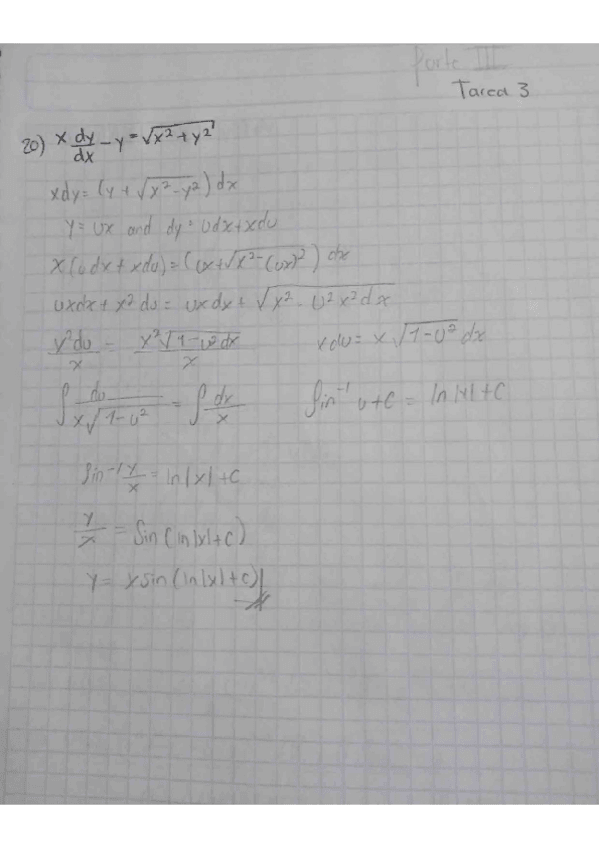 Parte III
Tarea 3
20) x dy/dx - y = √x² + y²
xdy = (y + √x² - y²) dx
y = ux and dy = udx + xdu
x(udx + xdu) = (ux + √x² - (ux)²) dx
uxdx + x² du = uxdx + √x² - u²x² dx
x²du/x = x²√1-u² dx/x xdu = x√1-u² dx
∫ du/x√1-u² = ∫ dx/x Sin⁻¹ u + C = ln|x| + C
Sin⁻¹ y/x = ln|x| + C
y/x = Sin(ln|x| + C)
y = x sin(ln|x| + C)